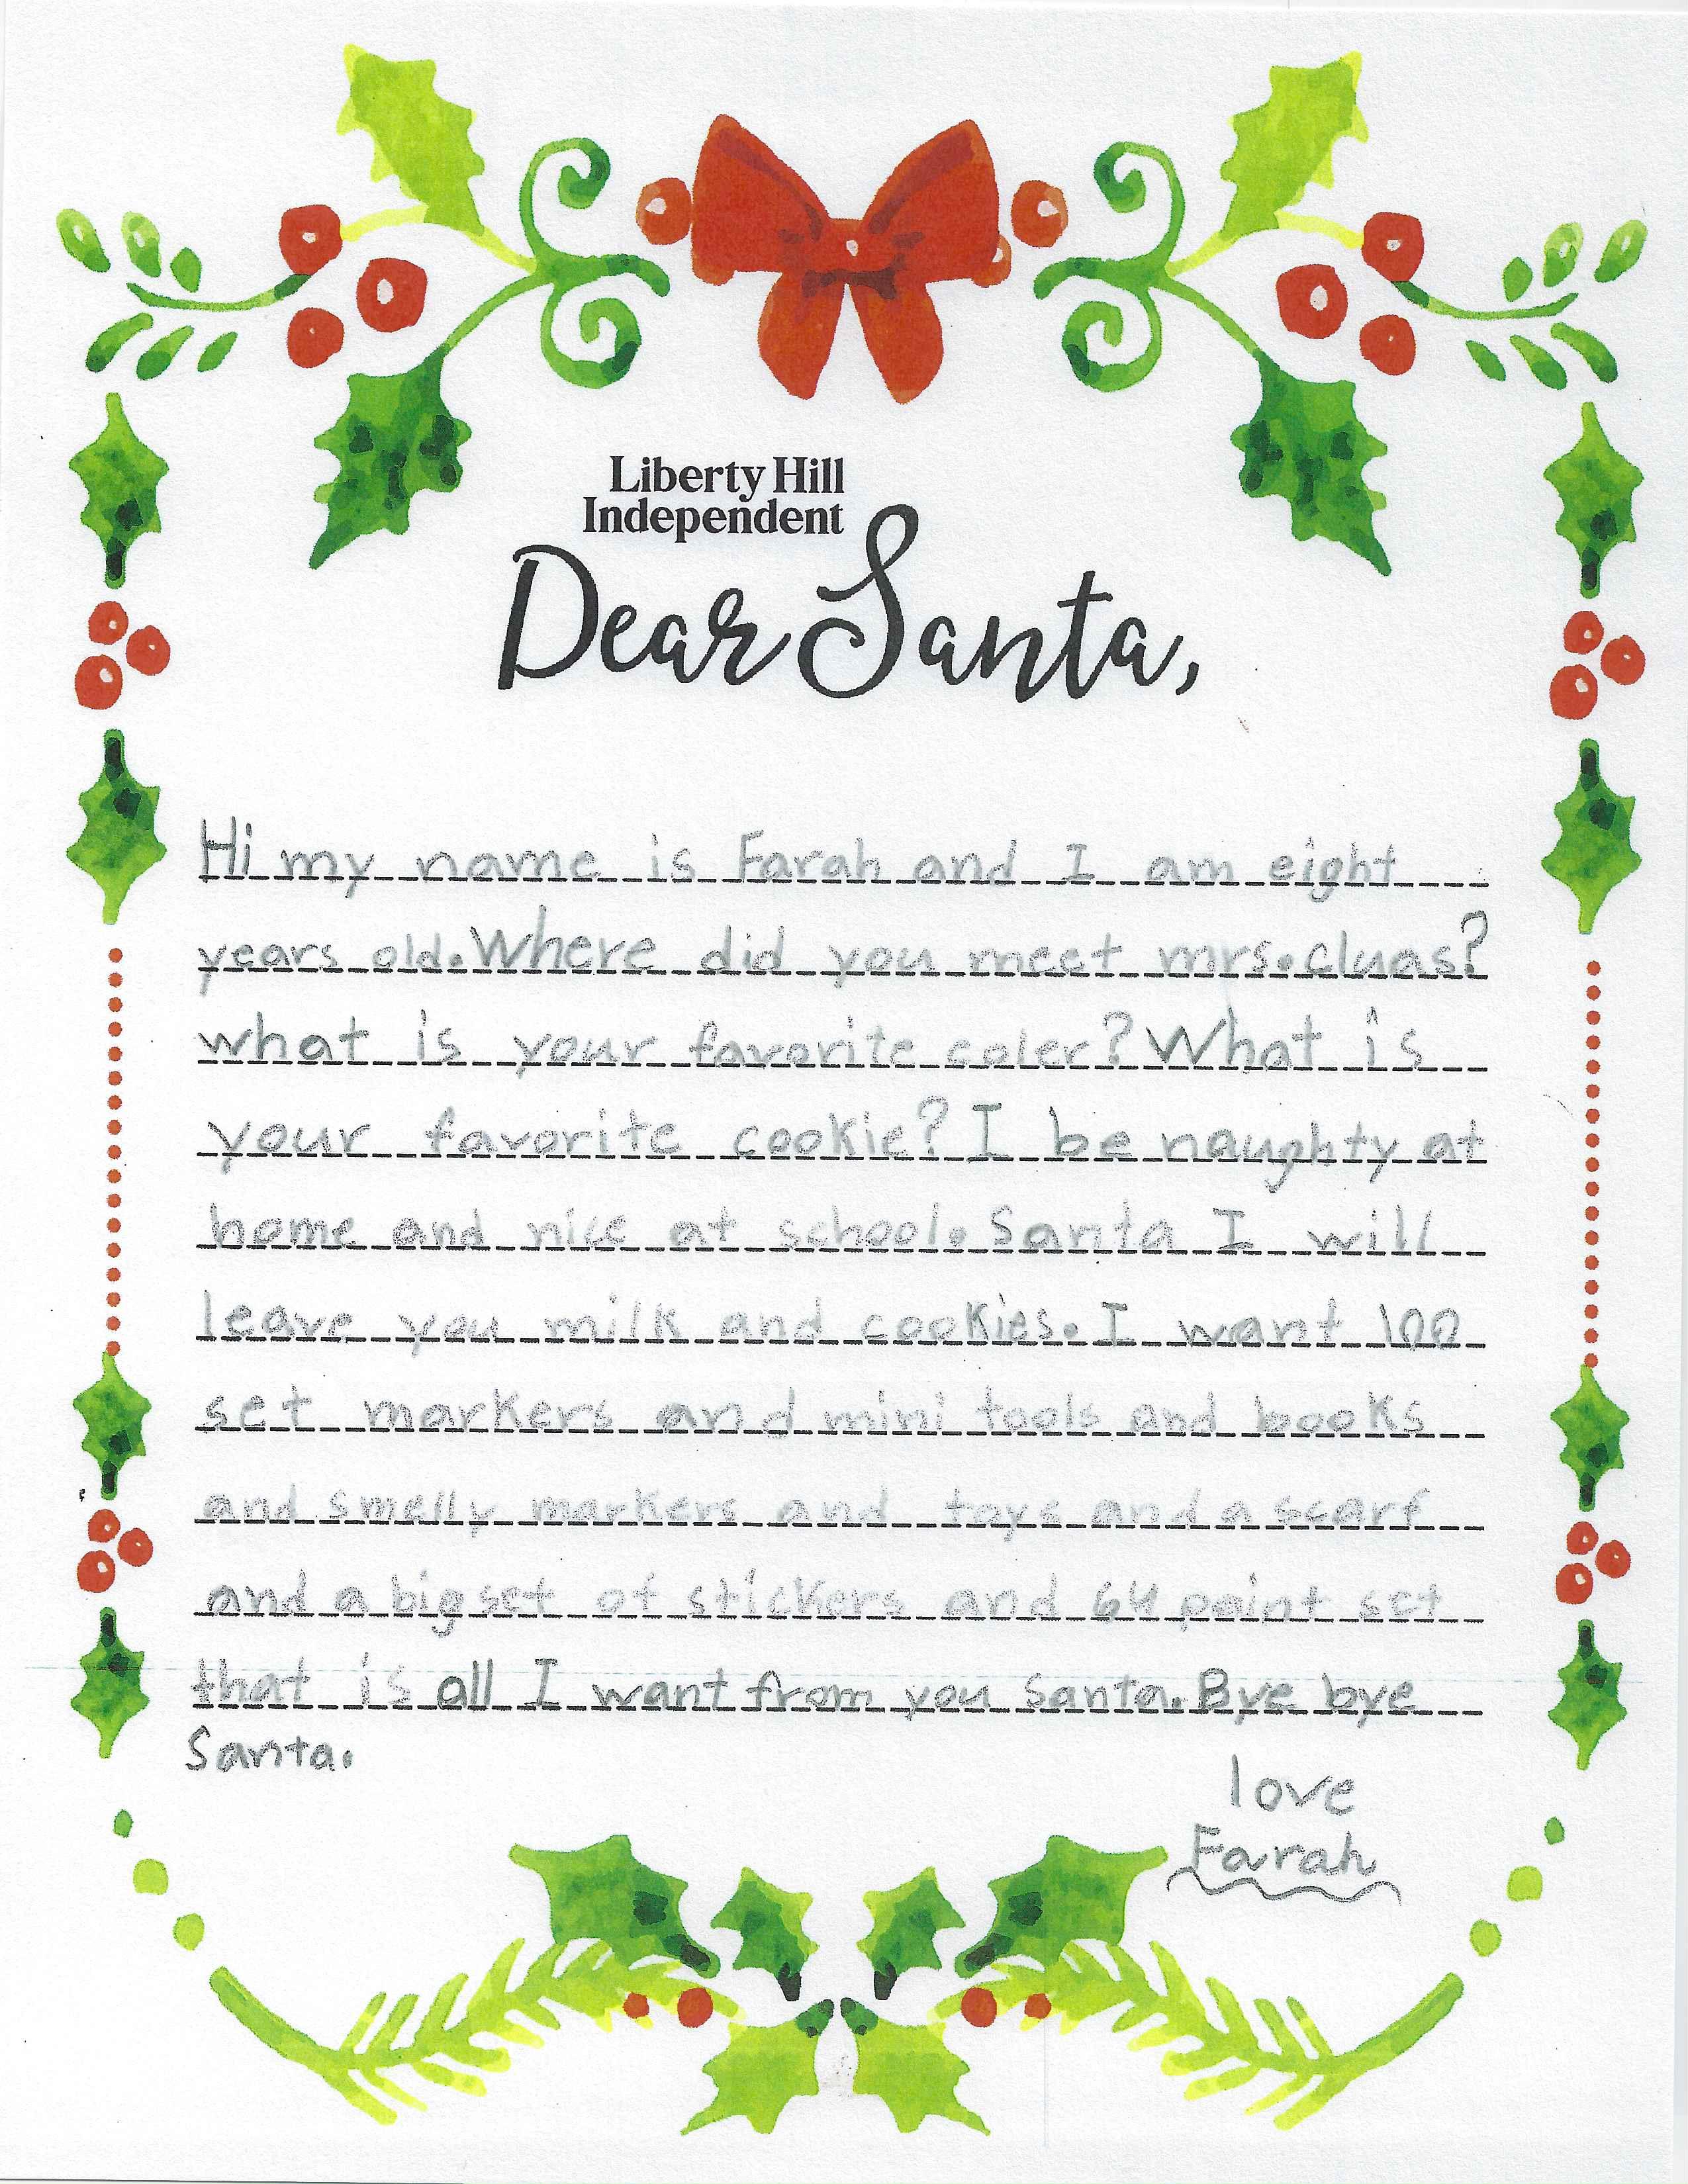 Liberty Hill
Independent
Dear Santa,
Hi my name is Farah and I am eight
years old. Where did you meet mrs. cluas?
what is your favorite coler? What is
your favorite cookie? I be naughty at
home and nice at school. Santa I will
leave you milk and cookies. I want 100
set markers and mini tools and books
and smelly markers and toys and a scarf
and a big set of stickers and 64 paint set
that is all I want from you Santa. Bye bye
Santa.
love
Farah